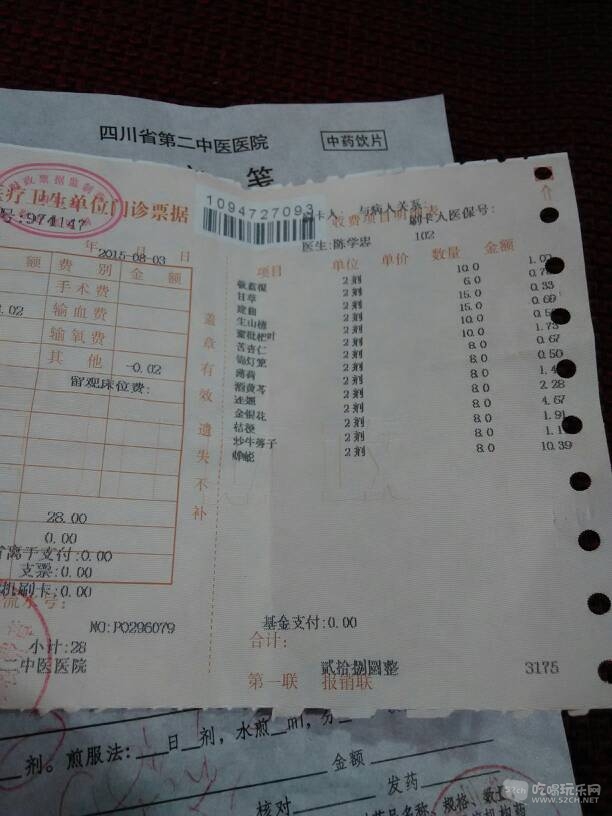 四川省第二中医医院
中药饮片
笺
疗卫生单位门诊票据
号:974147
1094727093
与病人关系:
收费项目明细表
刷卡人医保号:
年 月 日
2015-08-03
医生:陈学忠
102
额 费别 金额
项目 单位 单价 数量 金额
手术费
输血费
输氧费
其他 -0.02
留观床位费:
盖章有效 遗失不补
2剂 10.0
甘草 2剂 6.0
建曲 2剂 15.0 0.33
生山楂 2剂 15.0 0.69
蜜枇杷叶 2剂 10.0
苦杏仁 2剂 10.0 1.73
锦灯笼 2剂 8.0 0.67
薄荷 2剂 8.0 0.50
酒黄芩 2剂 8.0
连翘 2剂 8.0 2.28
金银花 2剂 8.0 4.67
桔梗 2剂 8.0 1.91
炒牛蒡子 2剂 8.0
蝉蜕 2剂 8.0 10.39
28.00
0.00
离干支付:0.00
支票:0.00
机刷卡:0.00
流水号:
NO:P0296079
基金支付:0.00
小计:28
合计:
二中医医院
贰拾捌圆整
3175
第一联 报销联
剂。煎服法: 日 剂，水煎 ml，分
金额
核对 发药
药品名称、规格、数量
吃喝玩乐网
WWW.52CH.NET